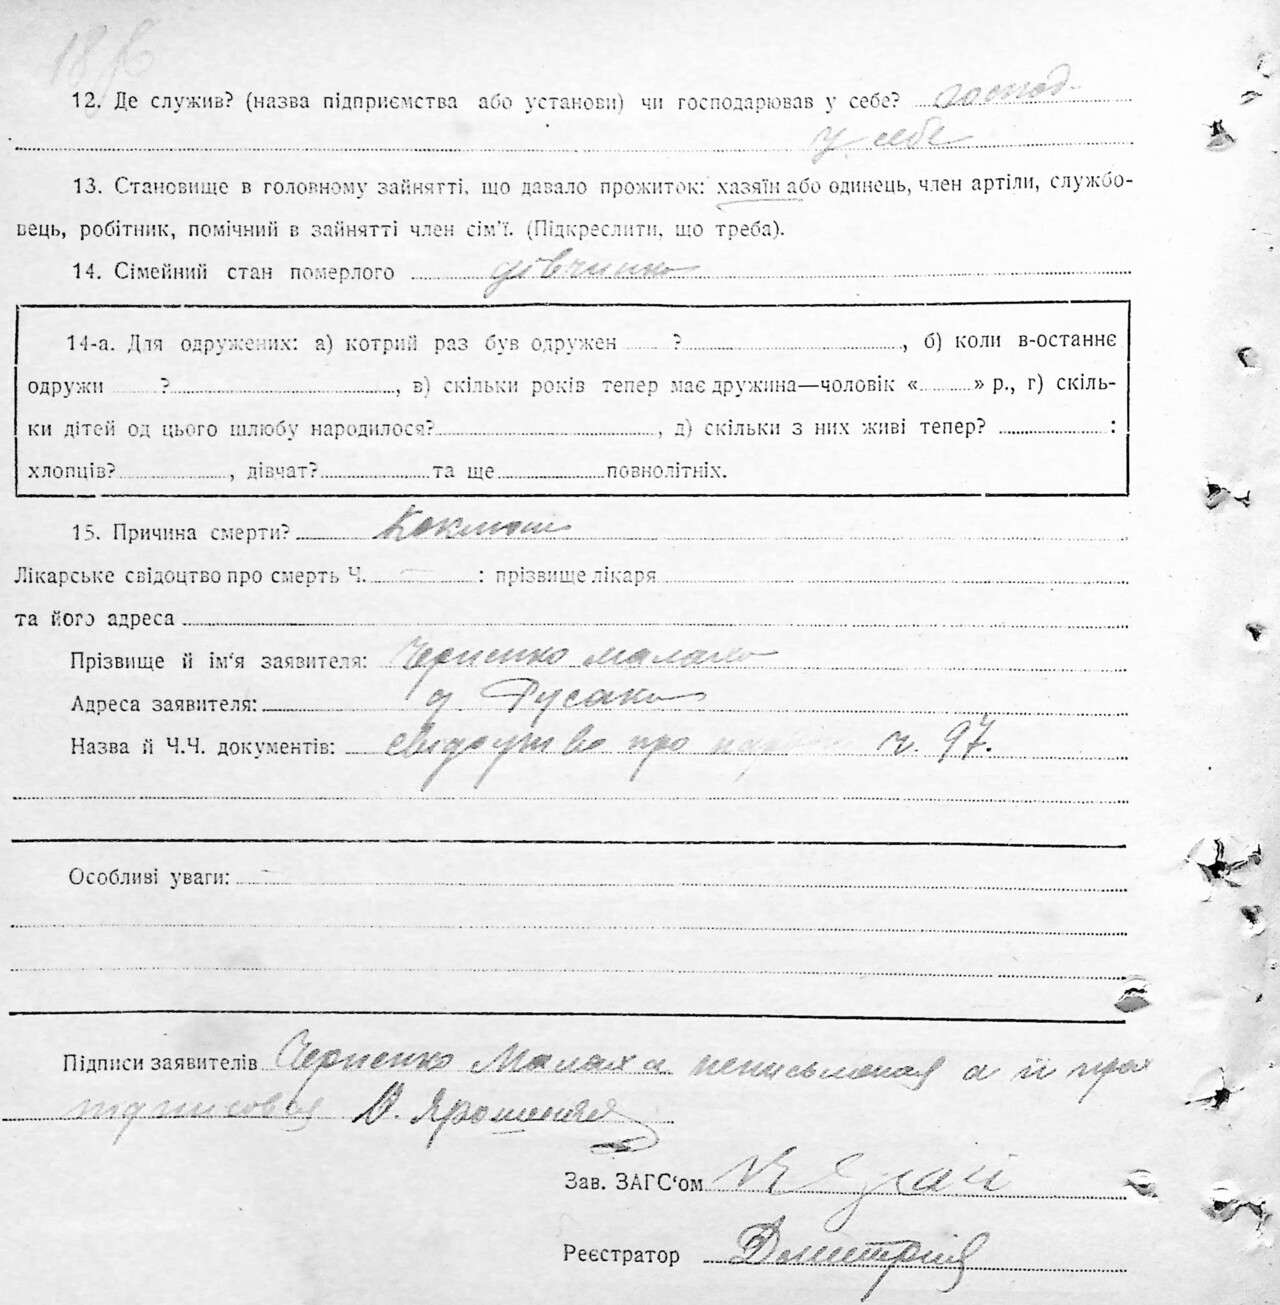 18
12. Де служив? (назва підприємства або установи) чи господарював у себе? господ.
у себе
13. Становище в головному зайнятті, що давало прожиток: хазяїн або одинець, член артіли, службо-
вець, робітник, помічний в зайнятті член сім'ї. (Підкреслити, що треба).
14. Сімейний стан померлого дівчина
14-а. Для одружених: а) котрий раз був одружен ?, б) коли в-останнє
одружи ?, в) скільки років тепер має дружина—чоловік « » р., г) скіль-
ки дітей од цього шлюбу народилося?, д) скільки з них живі тепер? :
хлопців?, дівчат? та ще повнолітніх.
15. Причина смерти? Коклюш
Лікарське свідоцтво про смерть Ч. — : прізвище лікаря
та його адреса
Прізвище й ім'я заявителя: Черненко Малаха
Адреса заявителя: д. Русаки
Назва й Ч.Ч. документів: свидоцтво про ч. 97.
Особливі уваги: —
Підписи заявителів Черненко Малаха неписьменая а її прох
підписовся
Зав. ЗАГС'ом
Реєстратор